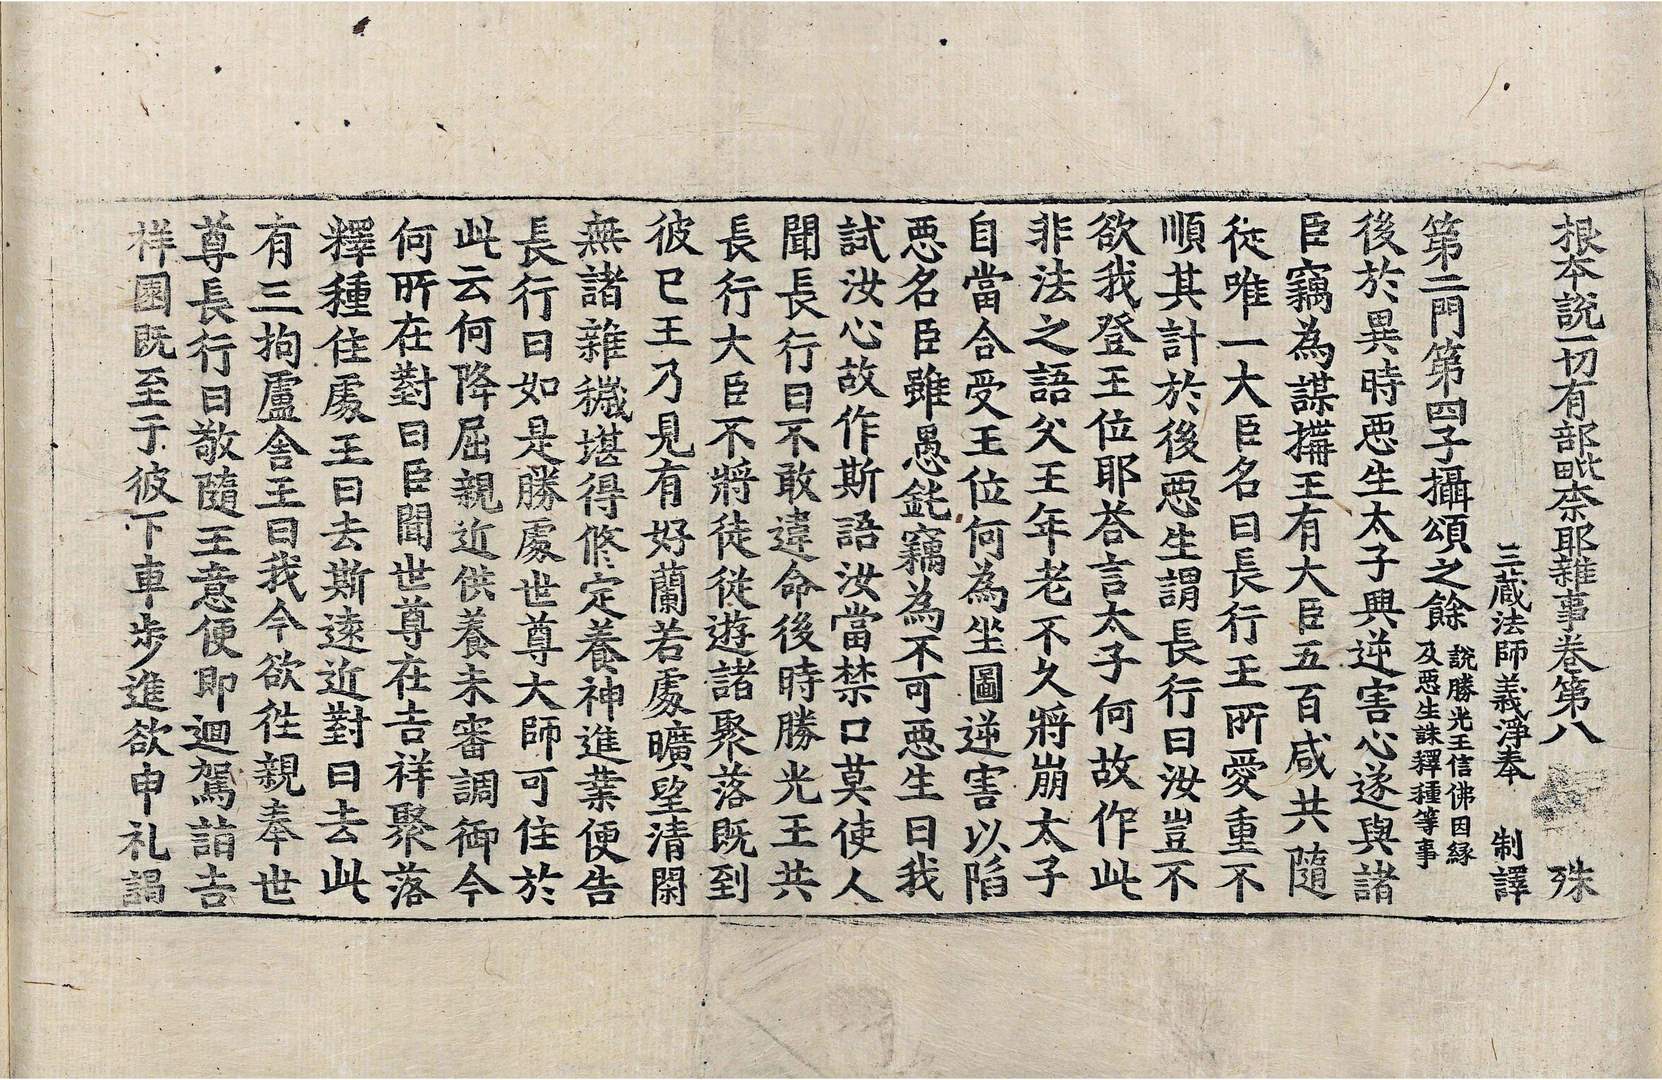 根本說一切有部毗柰耶雜事卷第八 殊
三藏法師義淨奉 制譯
第二門第四子攝頌之餘 說勝光王信佛因緣
及惡生誅釋種等事
後於異時惡生太子興逆害心遂與諸
臣竊為謀搆王有大臣五百咸共隨
從唯一大臣名曰長行王所愛重不
順其計於後惡生謂長行曰汝豈不
欲我登王位耶荅言太子何故作此
非法之語父王年老不久將崩太子
自當合受王位何為坐圖逆害以陷
惡名臣雖愚鈍竊為不可惡生曰我
試汝心故作斯語汝當禁口莫使人
聞長行曰不敢違命後時勝光王共
長行大臣不將徒從遊諸聚落既到
彼已王乃見有好蘭若處曠望清閑
無諸雜穢堪得修定養神進業便告
長行曰如是勝處世尊大師可住於
此云何降屈親近供養未審調御今
何所在對曰臣聞世尊在吉祥聚落
釋種住處王曰去斯遠近對曰去此
有三拘盧舍王曰我今欲徃親奉世
尊長行曰敬隨王意便即迴駕詣吉
祥園既至于彼下車步進欲申礼謁